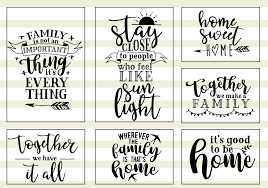 FAMILY
is not an
IMPORTANT
thing
it's
EVERY
THING
stay
CLOSE
to people
who feel
LIKE
sun
LIGHT
home
sweet
HOME
Together
we make a
FAMILY
Together
we have
it all
WHEREVER
THE
family
IS THAT'S
home
it's good
to be
home